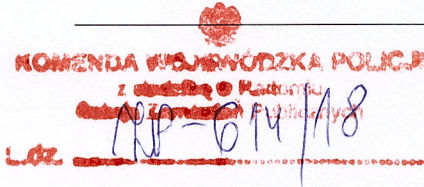 KOMENDA WOJEWÓDZKA POLICJI
z siedzibą w Radomiu
Zamówień Publicznych
L.dz. ZP-614/18